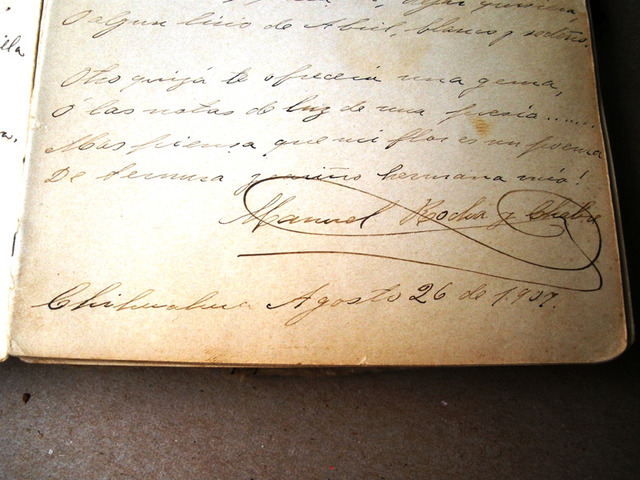 illa
O algun lirio de Abril, blanco y sedeño.
Otro quizá te ofrecerá una gema,
Ó las notas de luz de una poesía......
Mas piensa que mi flor es un poema
De ternura y cariño hermana mía!
Manuel Rocha y Chabre
Chihuahua Agosto 26 de 1907.